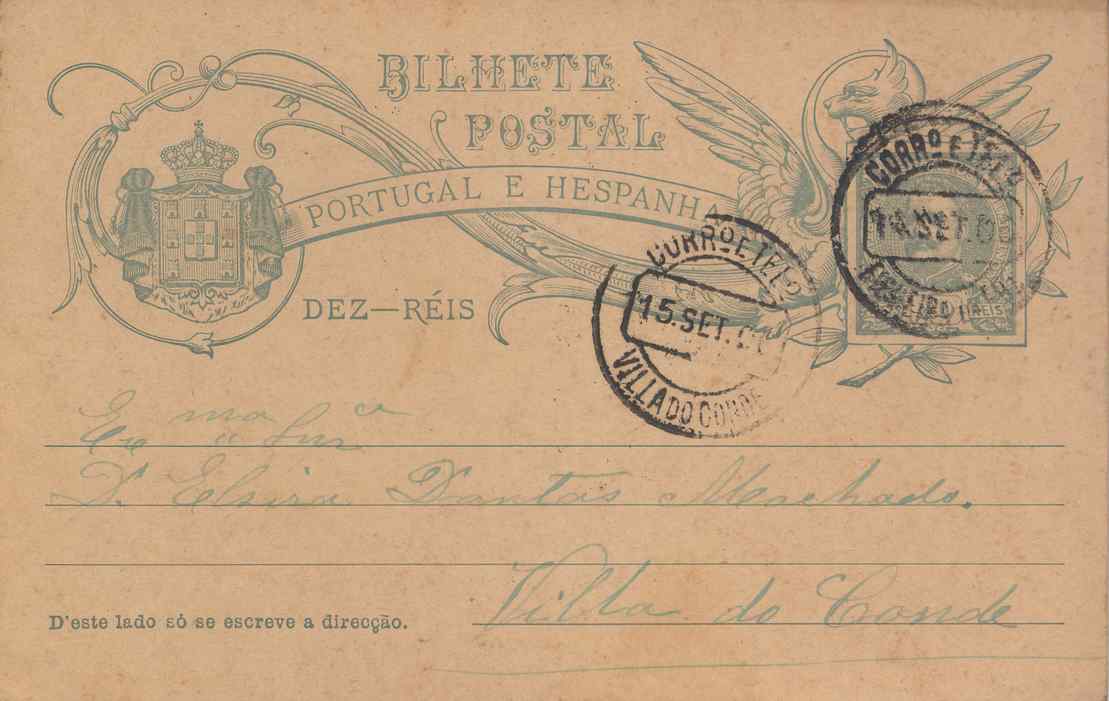 BILHETE
POSTAL
PORTUGAL E HESPANHA
DEZ—RÉIS
CORRO E TELO
14.SET.0
RÉIS
CORRO E TELO
15.SET.0
VILLA DO CONDE
Exma Snra
D. Elvira Dantas Machado.
Villa do Conde
D'este lado só se escreve a direcção.